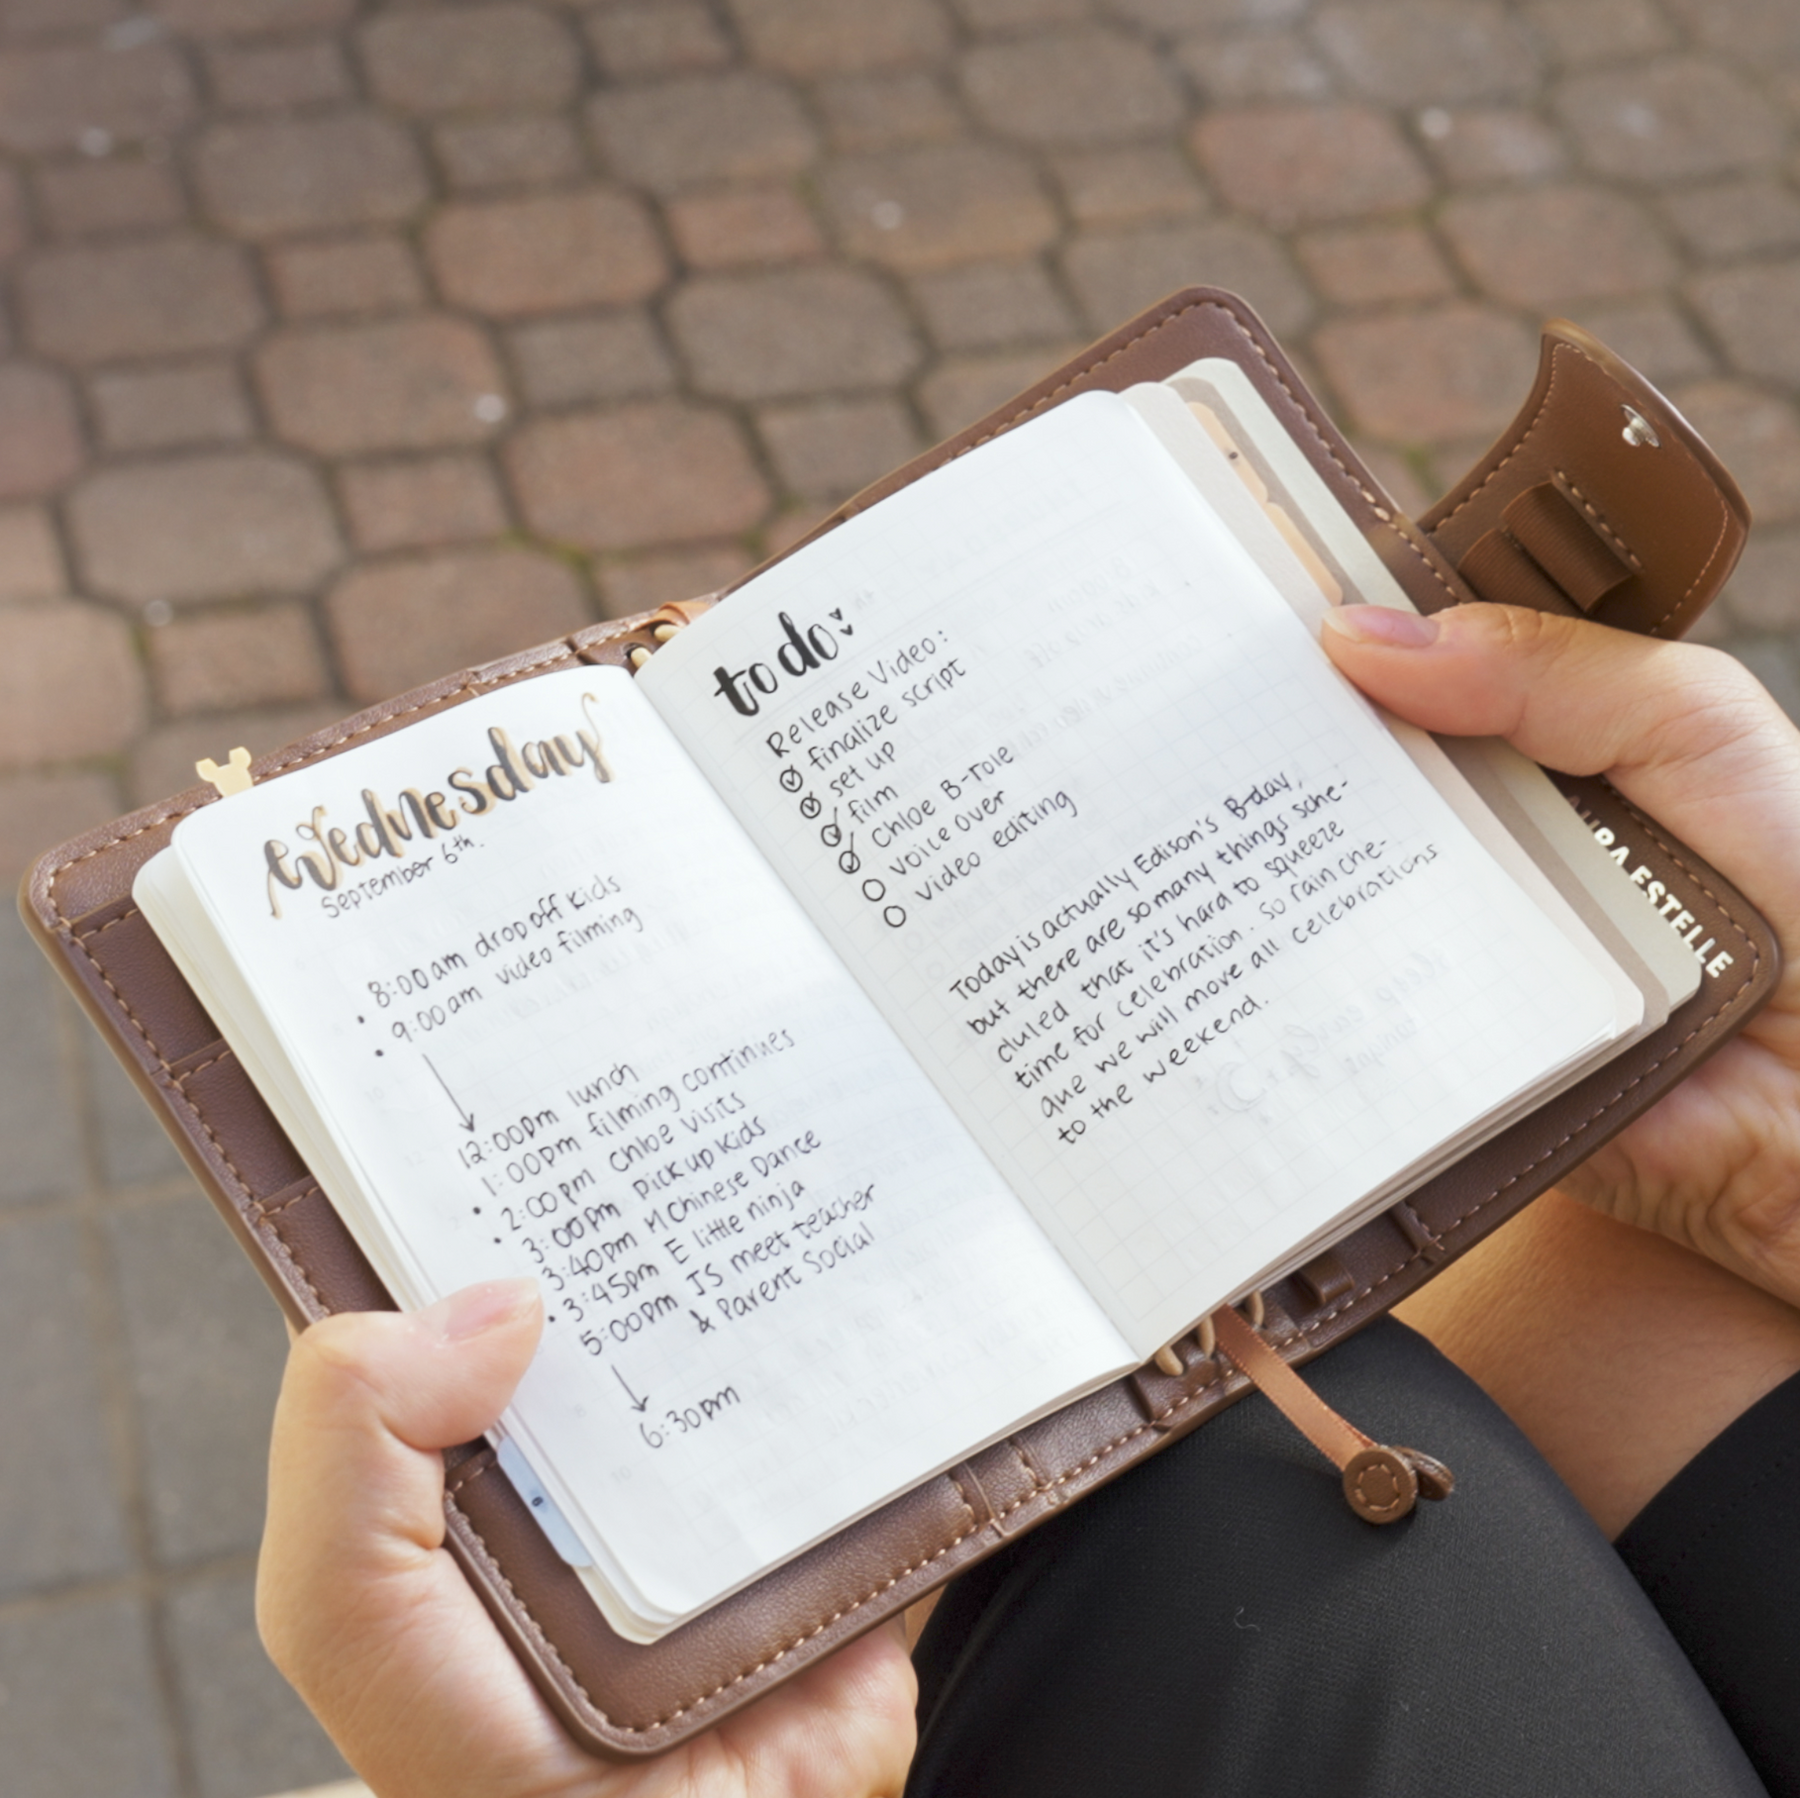 Wednesday
September 6th.
8:00am drop off kids
9:00am video filming
12:00pm lunch
1:00pm filming continues
2:00pm Chloe visits
3:00pm Pick up kids
3:40pm M Chinese Dance
3:45pm E little ninja
5:00pm JS meet teacher
& Parent Social
6:30pm
to do:
Release Video:
finalize script
set up
film
Chloe B-role
voice over
video editing
Today is actually Edison's B-day,
but there are so many things sche-
duled that it's hard to squeeze
time for celebration. So rain che-
que we will move all celebrations
to the weekend.
ESTELLE